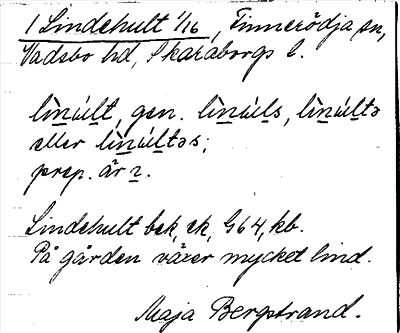 1 Lindehult 1/16, Finnerödja sn,
Vadsbo hd, Skaraborgs l.
lìnúlt, gen. lìnúls, lìnúltə
eller lìnúltəs;
prep. är ɩ.
Lindehult bek, sk, G64, kb.
På gården växer mycket lind.
Maja Bergstrand.